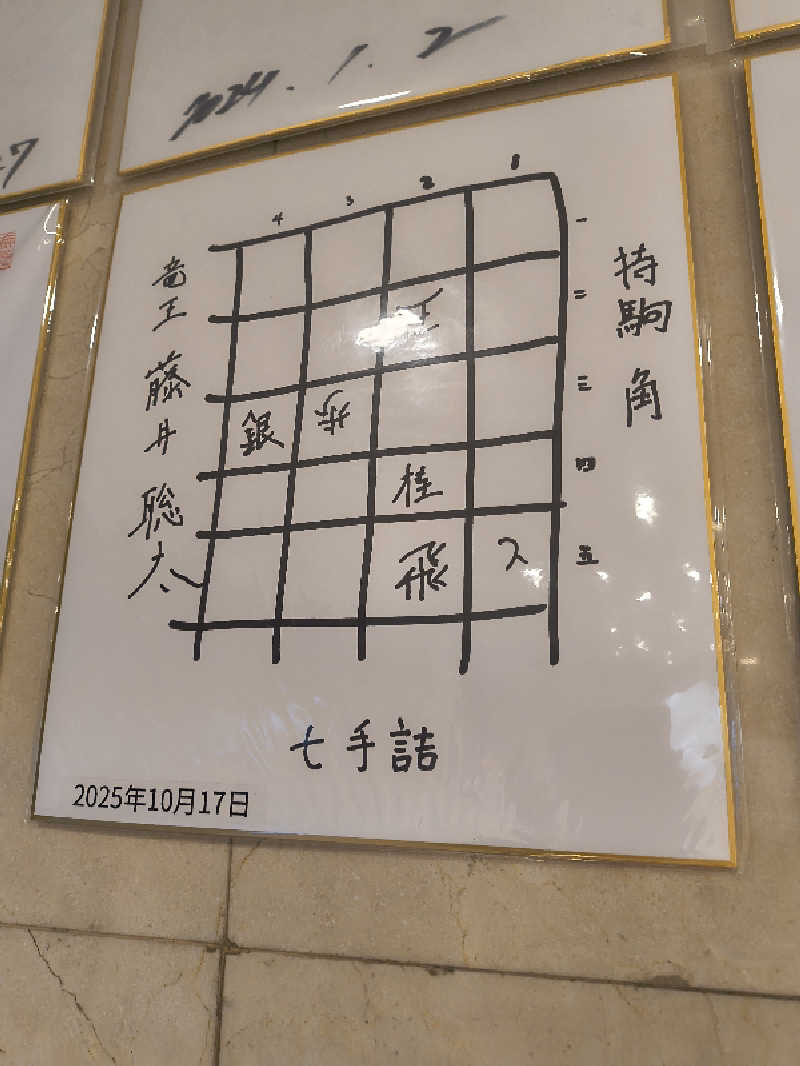 2024.1.2
4 3 2 1
一
二
三
四
五
持駒 角
王
銀 歩
桂
飛
竜王 藤井聡太
七手詰
2025年10月17日